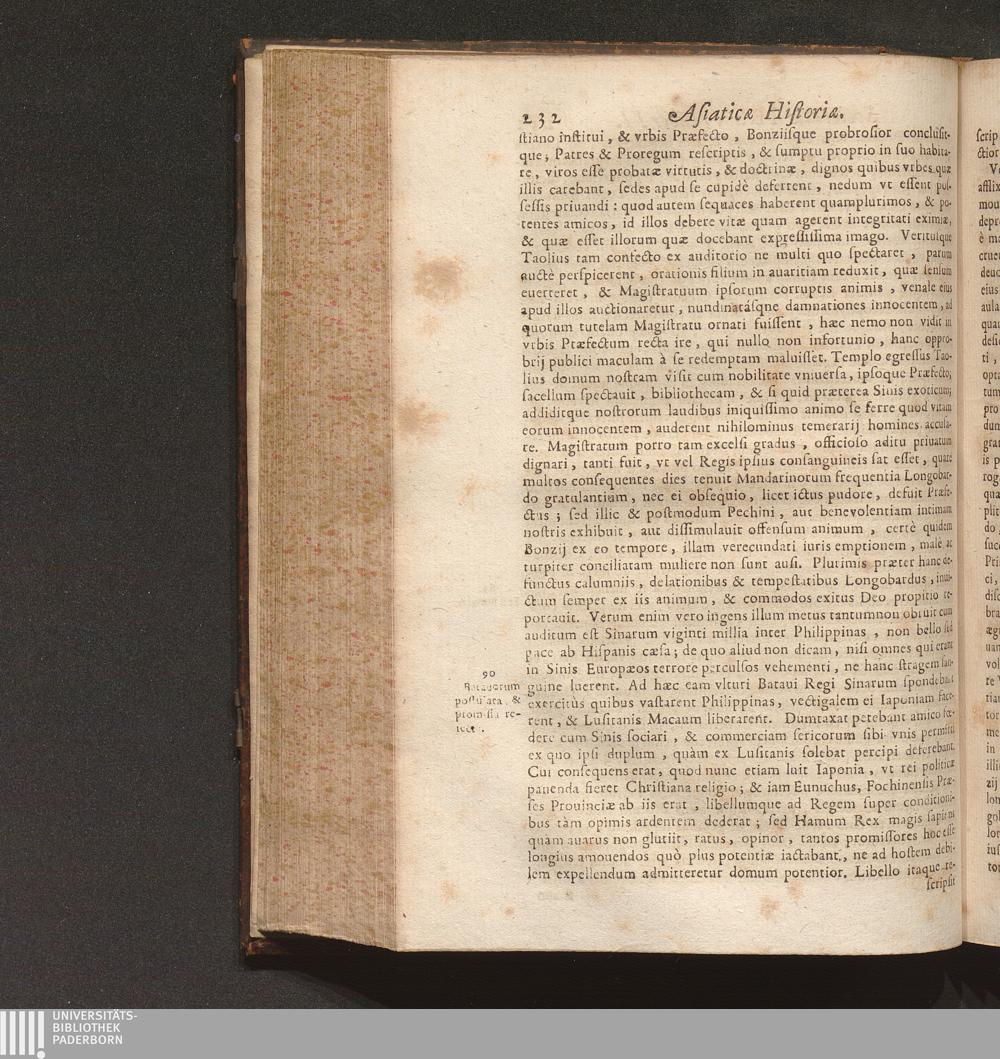 232 Asiaticæ Historiæ.
stiano institui, & vrbis Præfecto, Bonziisque probrosior conclusit-
que; Patres & Proregum rescriptis, & sumptu proprio in suo habita-
re, viros esse probatæ virtutis, & doctrinæ, dignos quibus vrbes quæ
illis carebant, sedes apud se cupidè deferrent, nedum vt essent pos-
sessis priuandi: quod autem sequaces haberent quamplurimos, & po-
tentes amicos, id illos debere vitæ quam agerent integritati eximiæ,
& quæ esset illorum quæ docebant expressissima imago. Veritusque
Taolius tam confecto ex auditorio ne multi quo spectaret, parum
auctè perspicerent, orationis filium in auaritiam reduxit, quæ sensum
euerteret, & Magistratuum ipsorum corruptis animis, venale eius
apud illos auctionaretur, nundinatásqne damnationes innocentem, ad
quorum tutelam Magistratu ornati fuissent, hæc nemo non vidit in
vrbis Præfectum recta ire, qui nullo non infortunio, hanc oppro-
brij publici maculam à se redemptam maluisset. Templo egressus Tao-
lius domum nostram visit cum nobilitate vniuersa, ipsoque Præfecto;
sacellum spectauit, bibliothecam, & si quid præterea Sinis exoticum;
addiditque nostrorum laudibus iniquissimo animo se ferre quod vitam
eorum innocentem, auderent nihilominus temerarij homines accusa-
re. Magistratum porro tam excelsi gradus, officioso aditu priuatum
dignari, tanti fuit, vt vel Regis ipsius consanguineis sat esset, quare
multos consequentes dies tenuit Mandarinorum frequentia Longobar-
do gratulantium, nec ei obsequio, licet ictus pudore, defuit Præfe-
ctus; sed illic & postmodum Pechini, aut benevolentiam intimam
nostris exhibuit, aut dissimulauit offensum animum, certè quidem
Bonzij ex eo tempore, illam verecundati iuris emptionem, malè ac
turpiter conciliatam muliere non sunt ausi. Plurimis præter hanc de-
functus calumniis, delationibus & tempestatibus Longobardus, inui-
ctum semper ex iis animum, & commodos exitus Deo propitio re-
portauit. Verum enim vero ingens illum metus tantumnon obruit cum
auditum est Sinarum viginti millia inter Philippinas, non bello sed
pace ab Hispanis cæsa; de quo aliud non dicam, nisi omnes qui erant
in Sinis Europæos terrore perculsos vehementi, ne hanc stragem san-
90
Batauorum
postulata, &
promissa re-
iecta.
guine luerent. Ad hæc eam vlturi Bataui Regi Sinarum spondebant
exercitus quibus vastarent Philippinas, vectigalem ei Iaponiam face-
rent, & Lusitanis Macaum liberarent. Dumtaxat petebant amico fœ-
dere cum Sinis sociari, & commerciam sericorum sibi vnis permitti
ex quo ipsi duplum, quàm ex Lusitanis solebat percipi deferebant.
Cui consequens erat, quod nunc etiam luit Iaponia, vt rei politicæ
panenda fieret Christiana religio; & iam Eunuchus, Fochinensis Præ-
ses Prouinciæ ab iis erat, libellumque ad Regem super conditioni-
bus tàm opimis ardentem dederat; sed Hamum Rex magis sapiens
quàm auarus non glutiit, ratus, opinor, tantos promissores hoc esse
longius amouendos quò plus potentiæ iactabant, ne ad hostem debi-
lem expellendum admitteretur domum potentior. Libello itaque re-
scripsit
UNIVERSITÄTS-
BIBLIOTHEK
PADERBORN